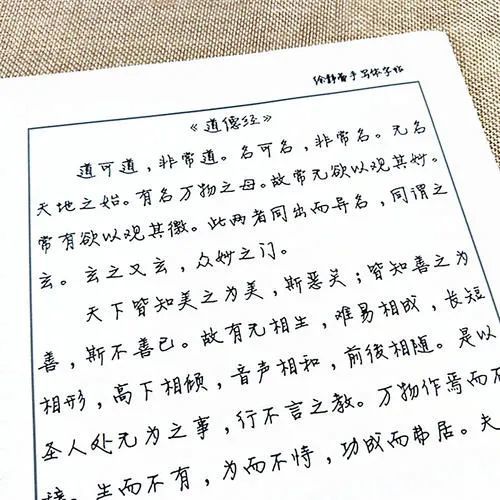 徐静蕾手写体字帖
《道德经》
道可道，非常道。名可名，非常名。无名
天地之始。有名万物之母。故常无欲以观其妙。
常有欲以观其徼。此两者同出而异名，同谓之
玄。玄之又玄，众妙之门。
天下皆知美之为美，斯恶矣；皆知善之为
善，斯不善已。故有无相生，难易相成，长短
相形，高下相倾，音声相和，前後相随。是以
圣人处无为之事，行不言之教。万物作焉而不
生而不有，为而不恃，功成而弗居。夫